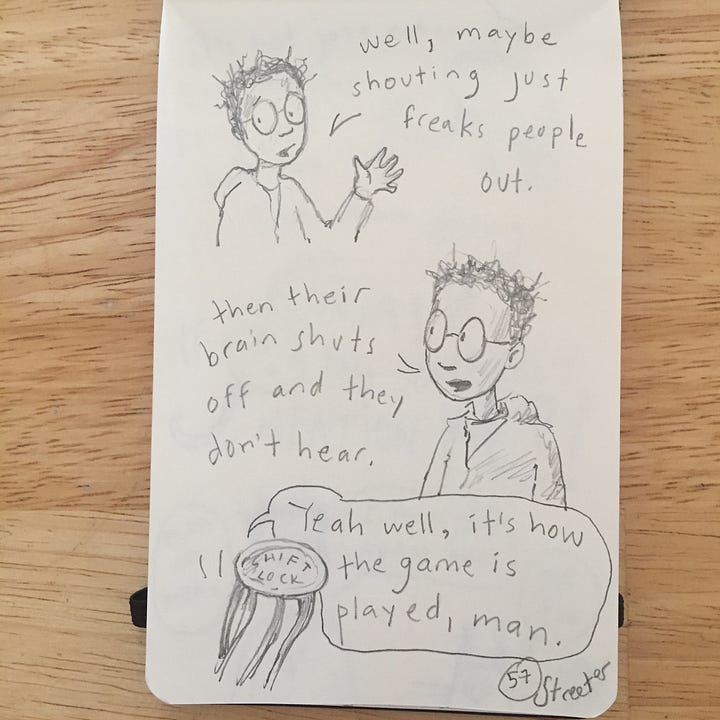 well, maybe
shouting just
freaks people
out.
then their
brain shuts
off and they
don't hear.
Yeah well, it's how
the game is
played, man.
SHIFT
LOCK
57
Streeter